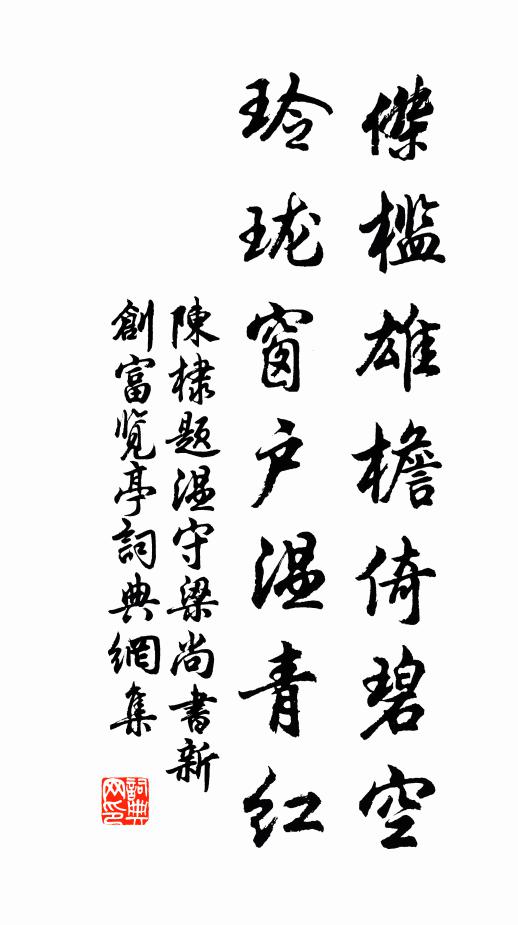 傑槛雄檐倚碧空
玲珑窗户温青红
陳棣题温守梁尚書新
創富览亭詞典網集
詞典
网印